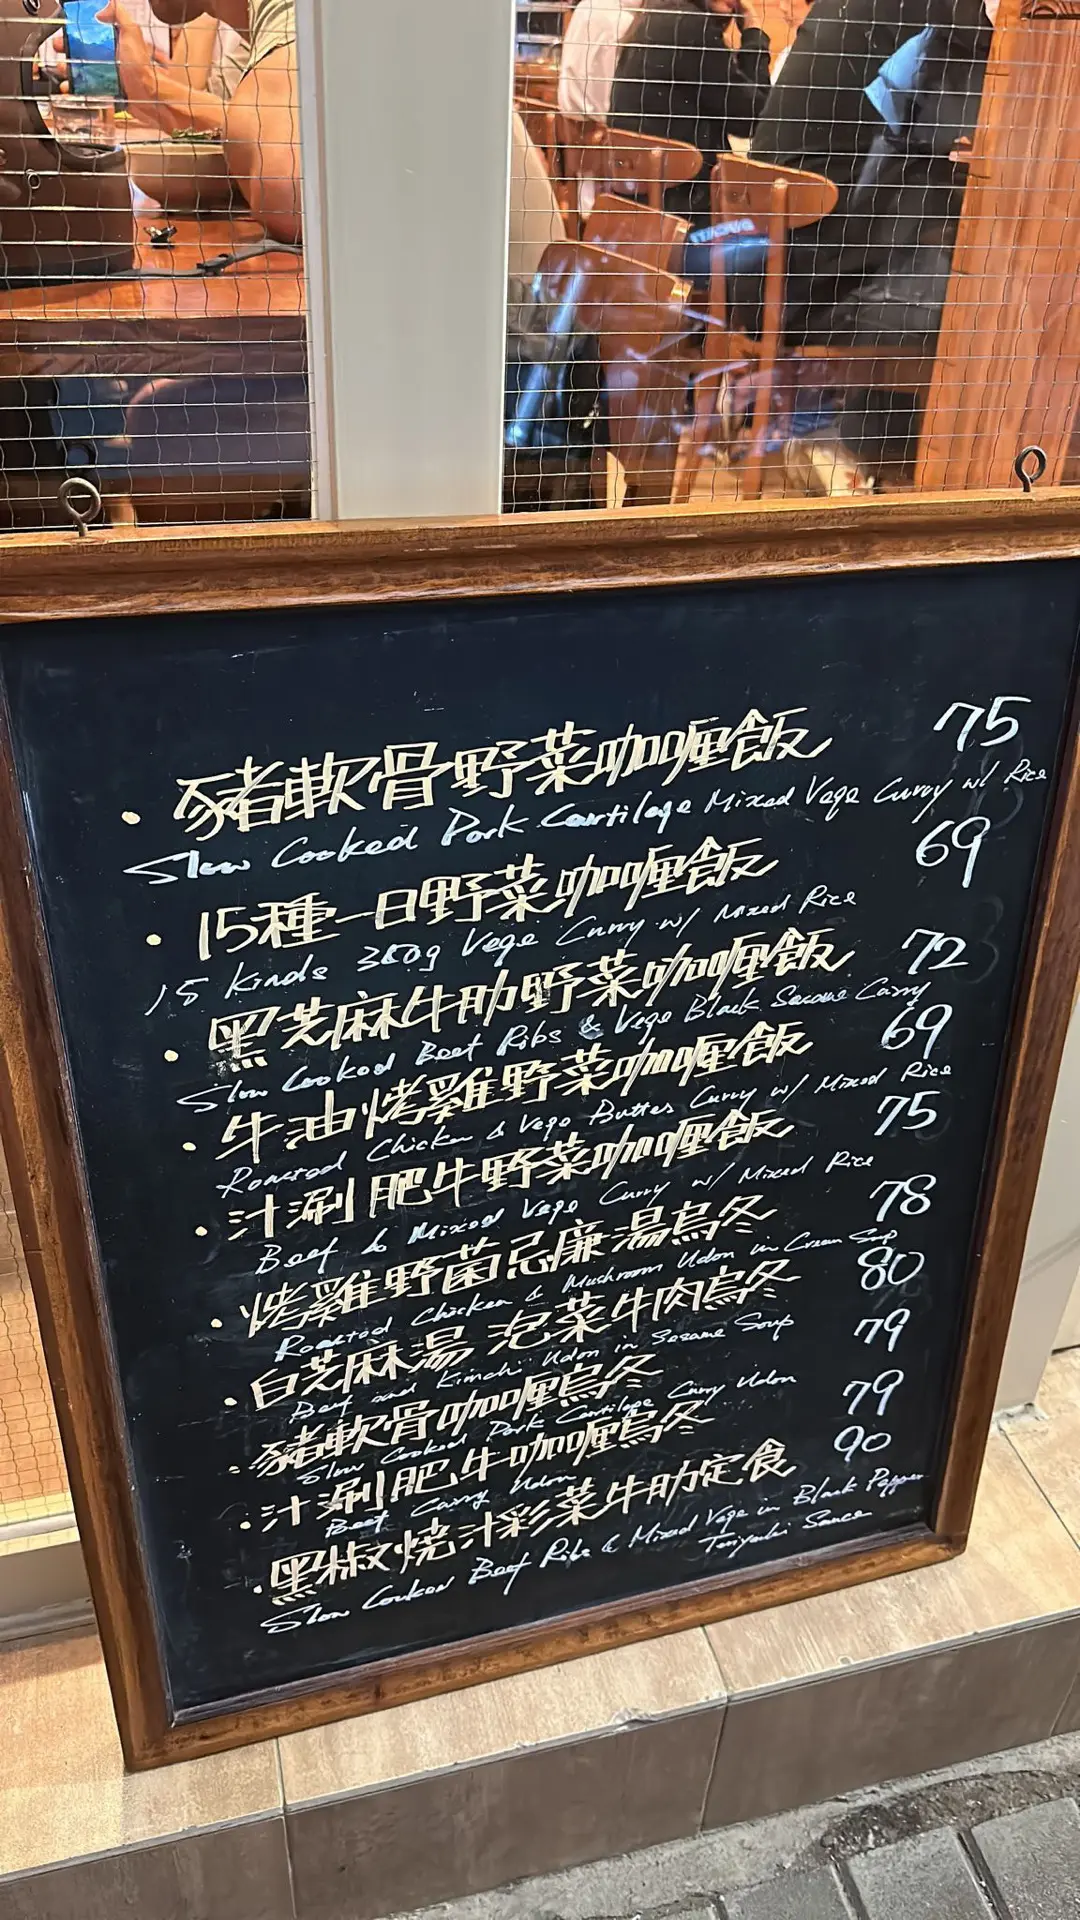 · 豬軟骨野菜咖喱飯 75
Slow Cooked Pork Cartilage Mixed Vege Curry w/ Rice
· 15種一日野菜咖喱飯 69
15 Kinds 350g Vege Curry w/ Mixed Rice
· 黑芝麻牛肋野菜咖喱飯 72
Slow Cooked Beef Ribs & Vege Black Sesame Curry
· 牛油烤雞野菜咖喱飯 69
Roasted Chicken & Vege Butter Curry w/ Mixed Rice
· 汁涮肥牛野菜咖喱飯 75
Beef & Mixed Vege Curry w/ Mixed Rice
· 烤雞野菌忌廉湯烏冬 78
Roasted Chicken & Mushroom Udon in Cream Soup
· 白芝麻湯泡菜牛肉烏冬 80
Beef and Kimchi Udon in Sesame Soup
· 豬軟骨咖喱烏冬 79
Slow Cooked Pork Cartilage Curry Udon
· 汁涮肥牛咖喱烏冬 79
Beef Curry Udon
· 黑椒燒汁彩菜牛肋定食 90
Slow Cooked Beef Ribs & Mixed Vege in Black Pepper
Teriyaki Sauce